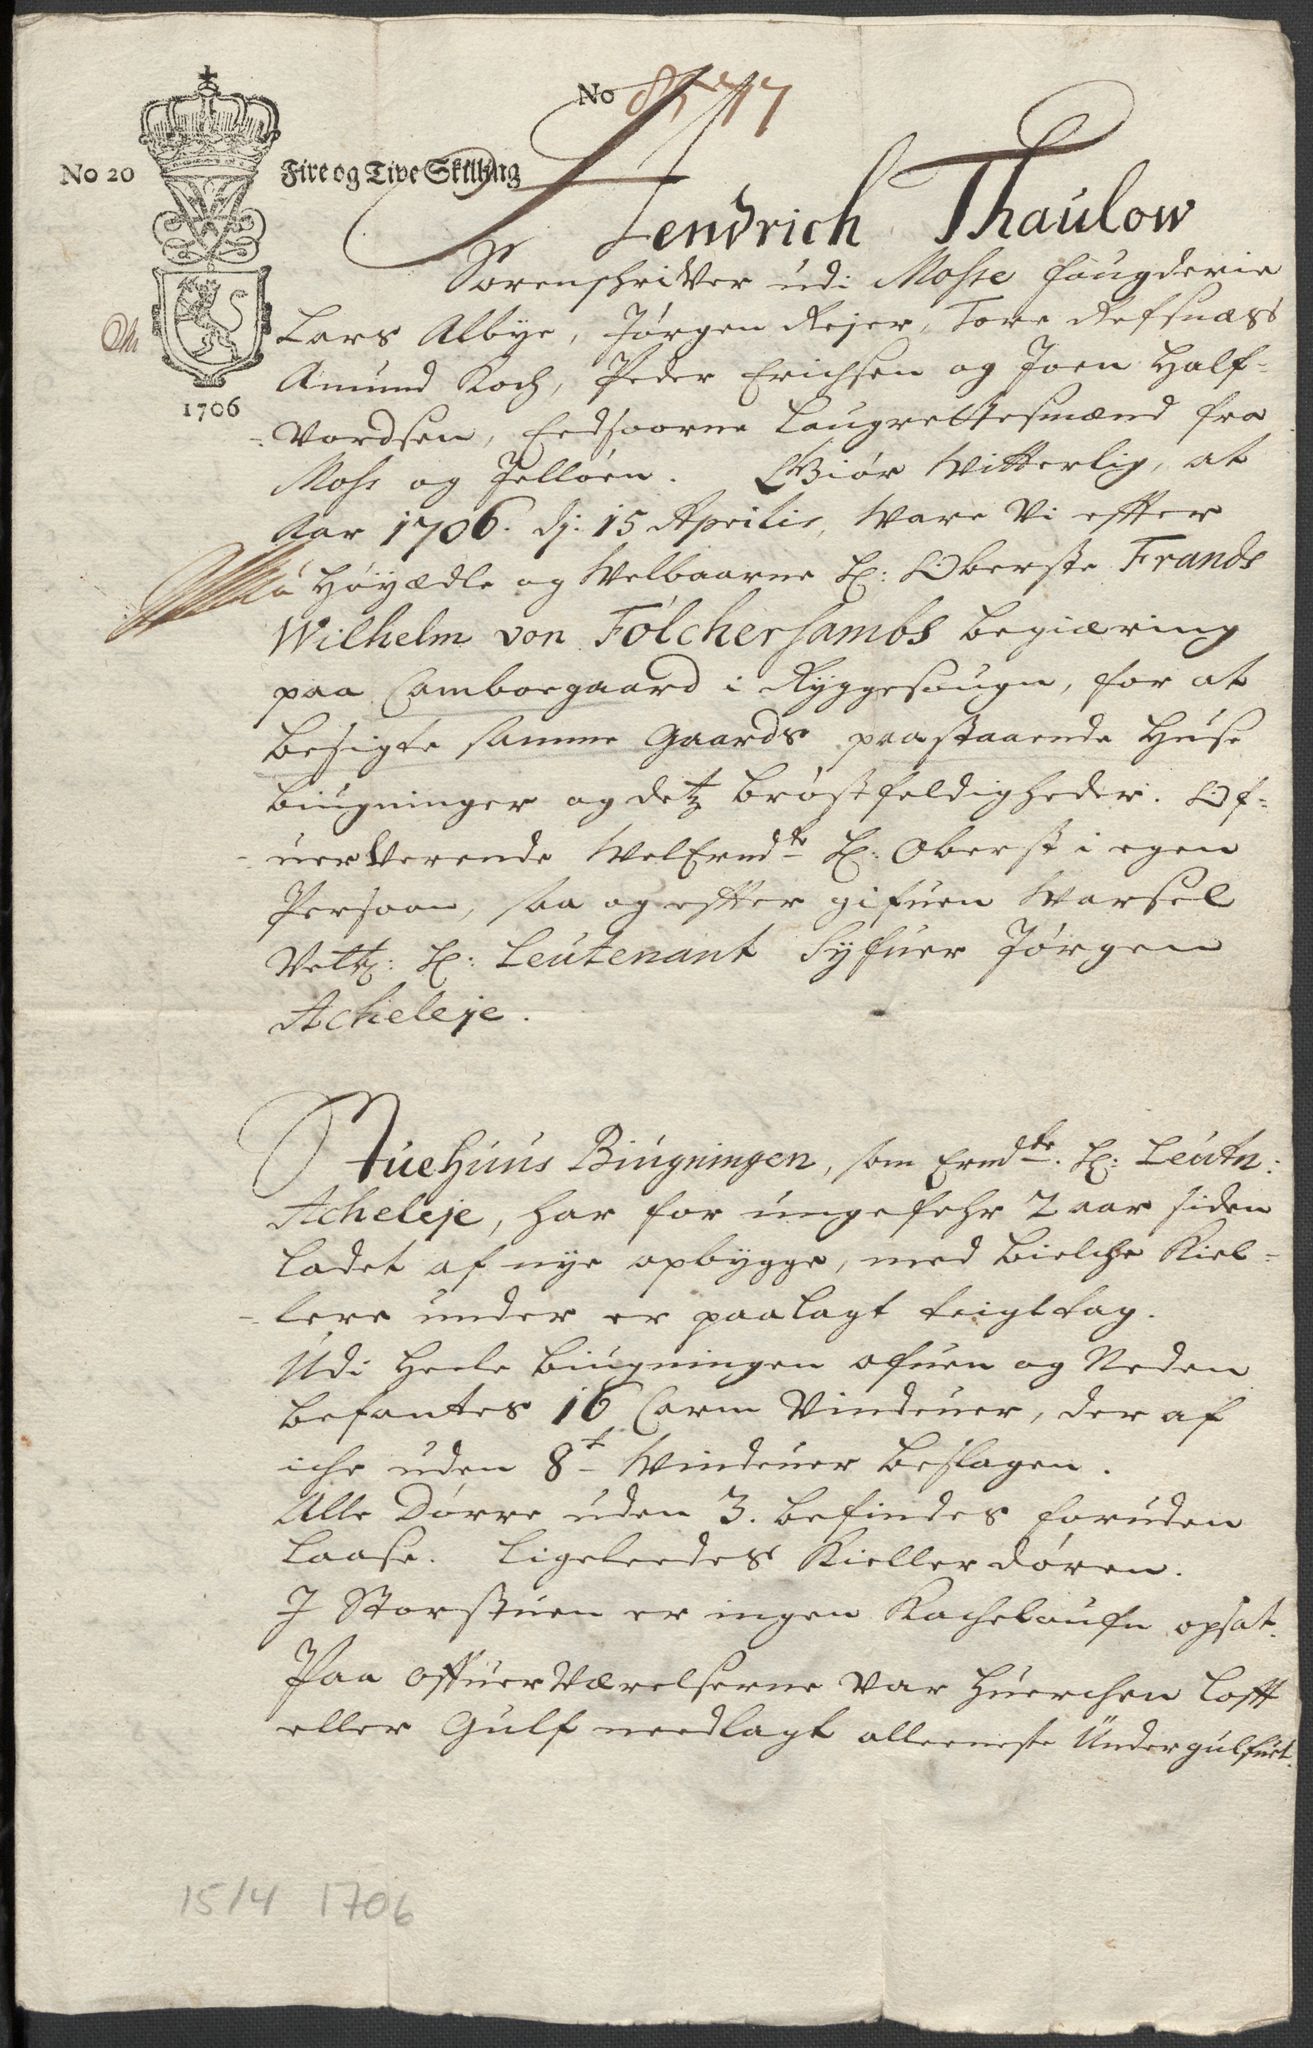 No 8547
No 20 Fire og Tive Skilling
Hendrich Thaulow
Sorenschriver udi Mosse fougderie
Lars Albye, Jørgen Rejer, Tore Refsnæs
Amund Koch, Peder Erichsen og Joen Half-
-vordsen, Eedsoorne Laugrettesmænd fra
1706
Moss og Jelløen. Giør Witterlig, at
Aar 1706. dj: 15 Aprilis, Ware Vi effter
Høyædle og Welbaarne H: Oberste Frands
Wilhelm von Fölchersambs begiæring
paa Camboegaard i Ryggesougn, for at
besigte samme gaards paastaaende Huse
biugninger og detz brøstfeldigheder. Of-
-uerVerende WelErmdte H: Oberst i egen
Persoon, saa og effter gifuen Warsel
Vettz: H: Leutenant Syfuer Jørgen
Acheleje.
Stuehuus Biugningen, som Ermdte. H: Leutn:
Acheleje, har for ungefehr 2 aar siden
ladet af nye opbygge, med bielche Kiel-
-lere under er paalagt teigltag.
Udi heele biugningen ofuen og Neden
befantes 16 Carm Vinduer, der af
iche uden 8t Winduer beslagen.
Alle Dørre uden 3. befindes foruden
Laase. ligeleedes Kieller døren.
I Storstuen er ingen Kacheloufn opsat.
Paa offuerWærelserne var huerchen Lofft
eller Gulf needlagt alleeneste Undergulfuet.
15/4 1706